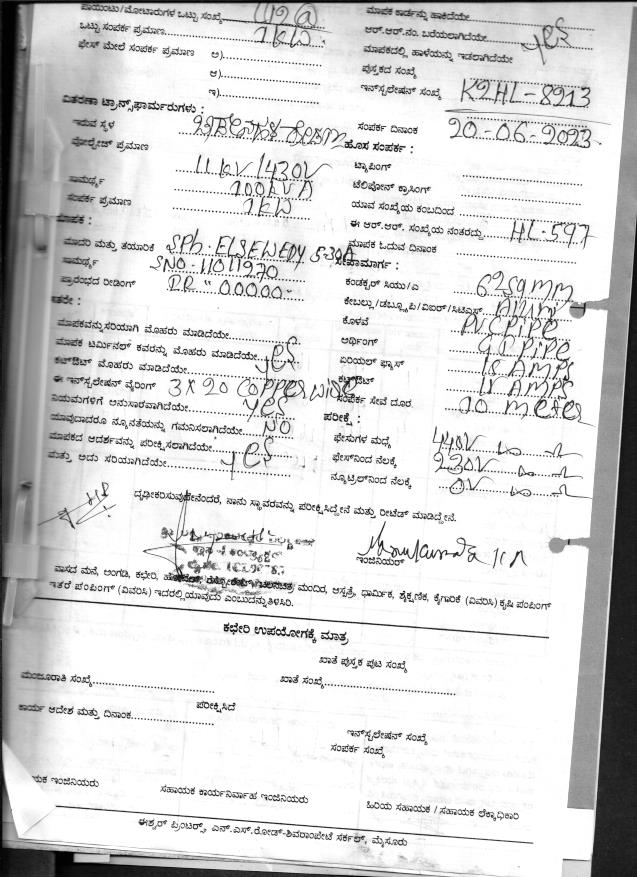 ಪಾಯಿಂಟು/ಮೋಟಾರುಗಳ ಒಟ್ಟು ಸಂಖ್ಯೆ
ಒಟ್ಟು ಸಂಪರ್ಕ ಪ್ರಮಾಣ 1KW
ಫೇಸ್ ಮೇಲೆ ಸಂಪರ್ಕ ಪ್ರಮಾಣ ಅ)
ಆ)
ಇ)
ಮಾಪಕ ಕಾರ್ಡನ್ನು ಹಾಕಿದೆಯೇ
ಆರ್.ಆರ್.ನಂ. ಬರೆಯಲಾಗಿದೆಯೇ yes
ಮಾಪಕದಲ್ಲಿ ಹಾಳೆಯನ್ನು ಇಡಲಾಗಿದೆಯೇ
ಪುಸ್ತಕದ ಸಂಖ್ಯೆ
ಇನ್‌ಸ್ಟಲೇಷನ್ ಸಂಖ್ಯೆ K2HL-8213
ವಿತರಣಾ ಟ್ರಾನ್ಸ್‌ಫಾರ್ಮರುಗಳು :
ಇರುವ ಸ್ಥಳ
ವೋಲ್ಟೇಜ್ ಪ್ರಮಾಣ 11KV/430V
ಸಾಮರ್ಥ್ಯ 100KVA
ಸಂಪರ್ಕ ಪ್ರಮಾಣ 1KW
ಸಂಪರ್ಕ ದಿನಾಂಕ 20-06-2023
ಹೊಸ ಸಂಪರ್ಕ :
ಟ್ಯಾಪಿಂಗ್
ಟೆಲಿಫೋನ್ ಕ್ರಾಸಿಂಗ್
ಯಾವ ಸಂಖ್ಯೆಯ ಕಂಬದಿಂದ
ಈ ಆರ್.ಆರ್. ಸಂಖ್ಯೆಯ ನಂತರದ್ದು HL-597
ಮಾಪಕ ಓದುವ ದಿನಾಂಕ
ಮಾಪಕ :
ಮಾದರಿ ಮತ್ತು ತಯಾರಿಕೆ SPh. ELSEWEDY 5-30A
ಸಾಮರ್ಥ್ಯ SNO-11011970
ಪ್ರಾರಂಭದ ರೀಡಿಂಗ್
ಇತರೇ :
ಮಾಪಕವನ್ನು ಸರಿಯಾಗಿ ಮೊಹರು ಮಾಡಿದೆಯೇ
ಮಾಪಕ ಟರ್ಮಿನಲ್ ಕವರನ್ನು ಮೊಹರು ಮಾಡಿದೆಯೇ yes
ಕಟ್‌ಔಟ್ ಮೊಹರು ಮಾಡಿದೆಯೇ
ಈ ಇನ್‌ಸ್ಟಲೇಷನ್ ವೈರಿಂಗ್ 3 X 20 COPPER WIRE
ನಿಯಮಗಳಿಗೆ ಅನುಸಾರವಾಗಿದೆಯೇ yes
ಯಾವುದಾದರೂ ನ್ಯೂನತೆಯನ್ನು ಗಮನಿಸಲಾಗಿದೆಯೇ NO
ಮಾಪಕದ ಆದರ್ಶವನ್ನು ಪರೀಕ್ಷಿಸಲಾಗಿದೆಯೇ
ಮತ್ತು ಅದು ಸರಿಯಾಗಿದೆಯೇ yes
ಸೇವಾಮಾರ್ಗ :
ಕಂಡಕ್ಟರ್ ಸಿಯು/ಎ 6 2sqmm
ಕೇಬಲ್ಲು/ಡಬ್ಲ್ಯೂಪಿ/ವಿಐಆರ್/ಸಿಟಿಎಸ್
ಕೊಳವೆ PVC PIPE
ಅರ್ಥಿಂಗ್ GI PIPE
ಏರಿಯಲ್ ಫ್ಯೂಸ್ 15 AMPS
ಕಟ್‌ಔಟ್ 15 AMPS
ಸಂಪರ್ಕ ಸೇವೆ ದೂರ 10 meter
ಪರೀಕ್ಷೆ :
ಫೇಸುಗಳ ಮಧ್ಯೆ 440V
ಫೇಸ್‌ನಿಂದ ನೆಲಕ್ಕೆ 230V
ನ್ಯೂಟ್ರಲ್‌ನಿಂದ ನೆಲಕ್ಕೆ 0V
ದೃಢೀಕರಿಸುವುದೇನೆಂದರೆ, ನಾನು ಸ್ಥಾವರವನ್ನು ಪರೀಕ್ಷಿಸಿದ್ದೇನೆ ಮತ್ತು ರೀಟೆಡ್ ಮಾಡಿದ್ದೇನೆ.
ಇಂಜಿನಿಯರ್
ವಾಸದ ಮನೆ, ಅಂಗಡಿ, ಕಛೇರಿ, ಚಲನಚಿತ್ರ ಮಂದಿರ, ಆಸ್ಪತ್ರೆ, ಧಾರ್ಮಿಕ, ಶೈಕ್ಷಣಿಕ, ಕೈಗಾರಿಕೆ (ವಿವರಿಸಿ) ಕೃಷಿ ಪಂಪಿಂಗ್
ಇತರೆ ಪಂಪಿಂಗ್ (ವಿವರಿಸಿ) ಇದರಲ್ಲಿ ಯಾವುದು ಎಂಬುದನ್ನು ತಿಳಿಸಿರಿ.
ಕಛೇರಿ ಉಪಯೋಗಕ್ಕೆ ಮಾತ್ರ
ಖಾತೆ ಪುಸ್ತಕ ಪುಟ ಸಂಖ್ಯೆ
ಮಂಜೂರಾತಿ ಸಂಖ್ಯೆ ಖಾತೆ ಸಂಖ್ಯೆ
ಪರೀಕ್ಷಿಸಿದೆ
ಕಾರ್ಯ ಆದೇಶ ಮತ್ತು ದಿನಾಂಕ
ಇನ್‌ಸ್ಟಲೇಷನ್ ಸಂಖ್ಯೆ
ಸಂಪರ್ಕ ಸಂಖ್ಯೆ
ಯಕ ಇಂಜಿನಿಯರು ಸಹಾಯಕ ಕಾರ್ಯನಿರ್ವಾಹ ಇಂಜಿನಿಯರು ಹಿರಿಯ ಸಹಾಯಕ / ಸಹಾಯಕ ಲೆಕ್ಕಾಧಿಕಾರಿ
ಈಶ್ವರ್ ಪ್ರಿಂಟರ್ಸ್, ಎನ್.ಎಸ್.ರೋಡ್-ಶಿವರಾಂಪೇಟೆ ಸರ್ಕಲ್, ಮೈಸೂರು